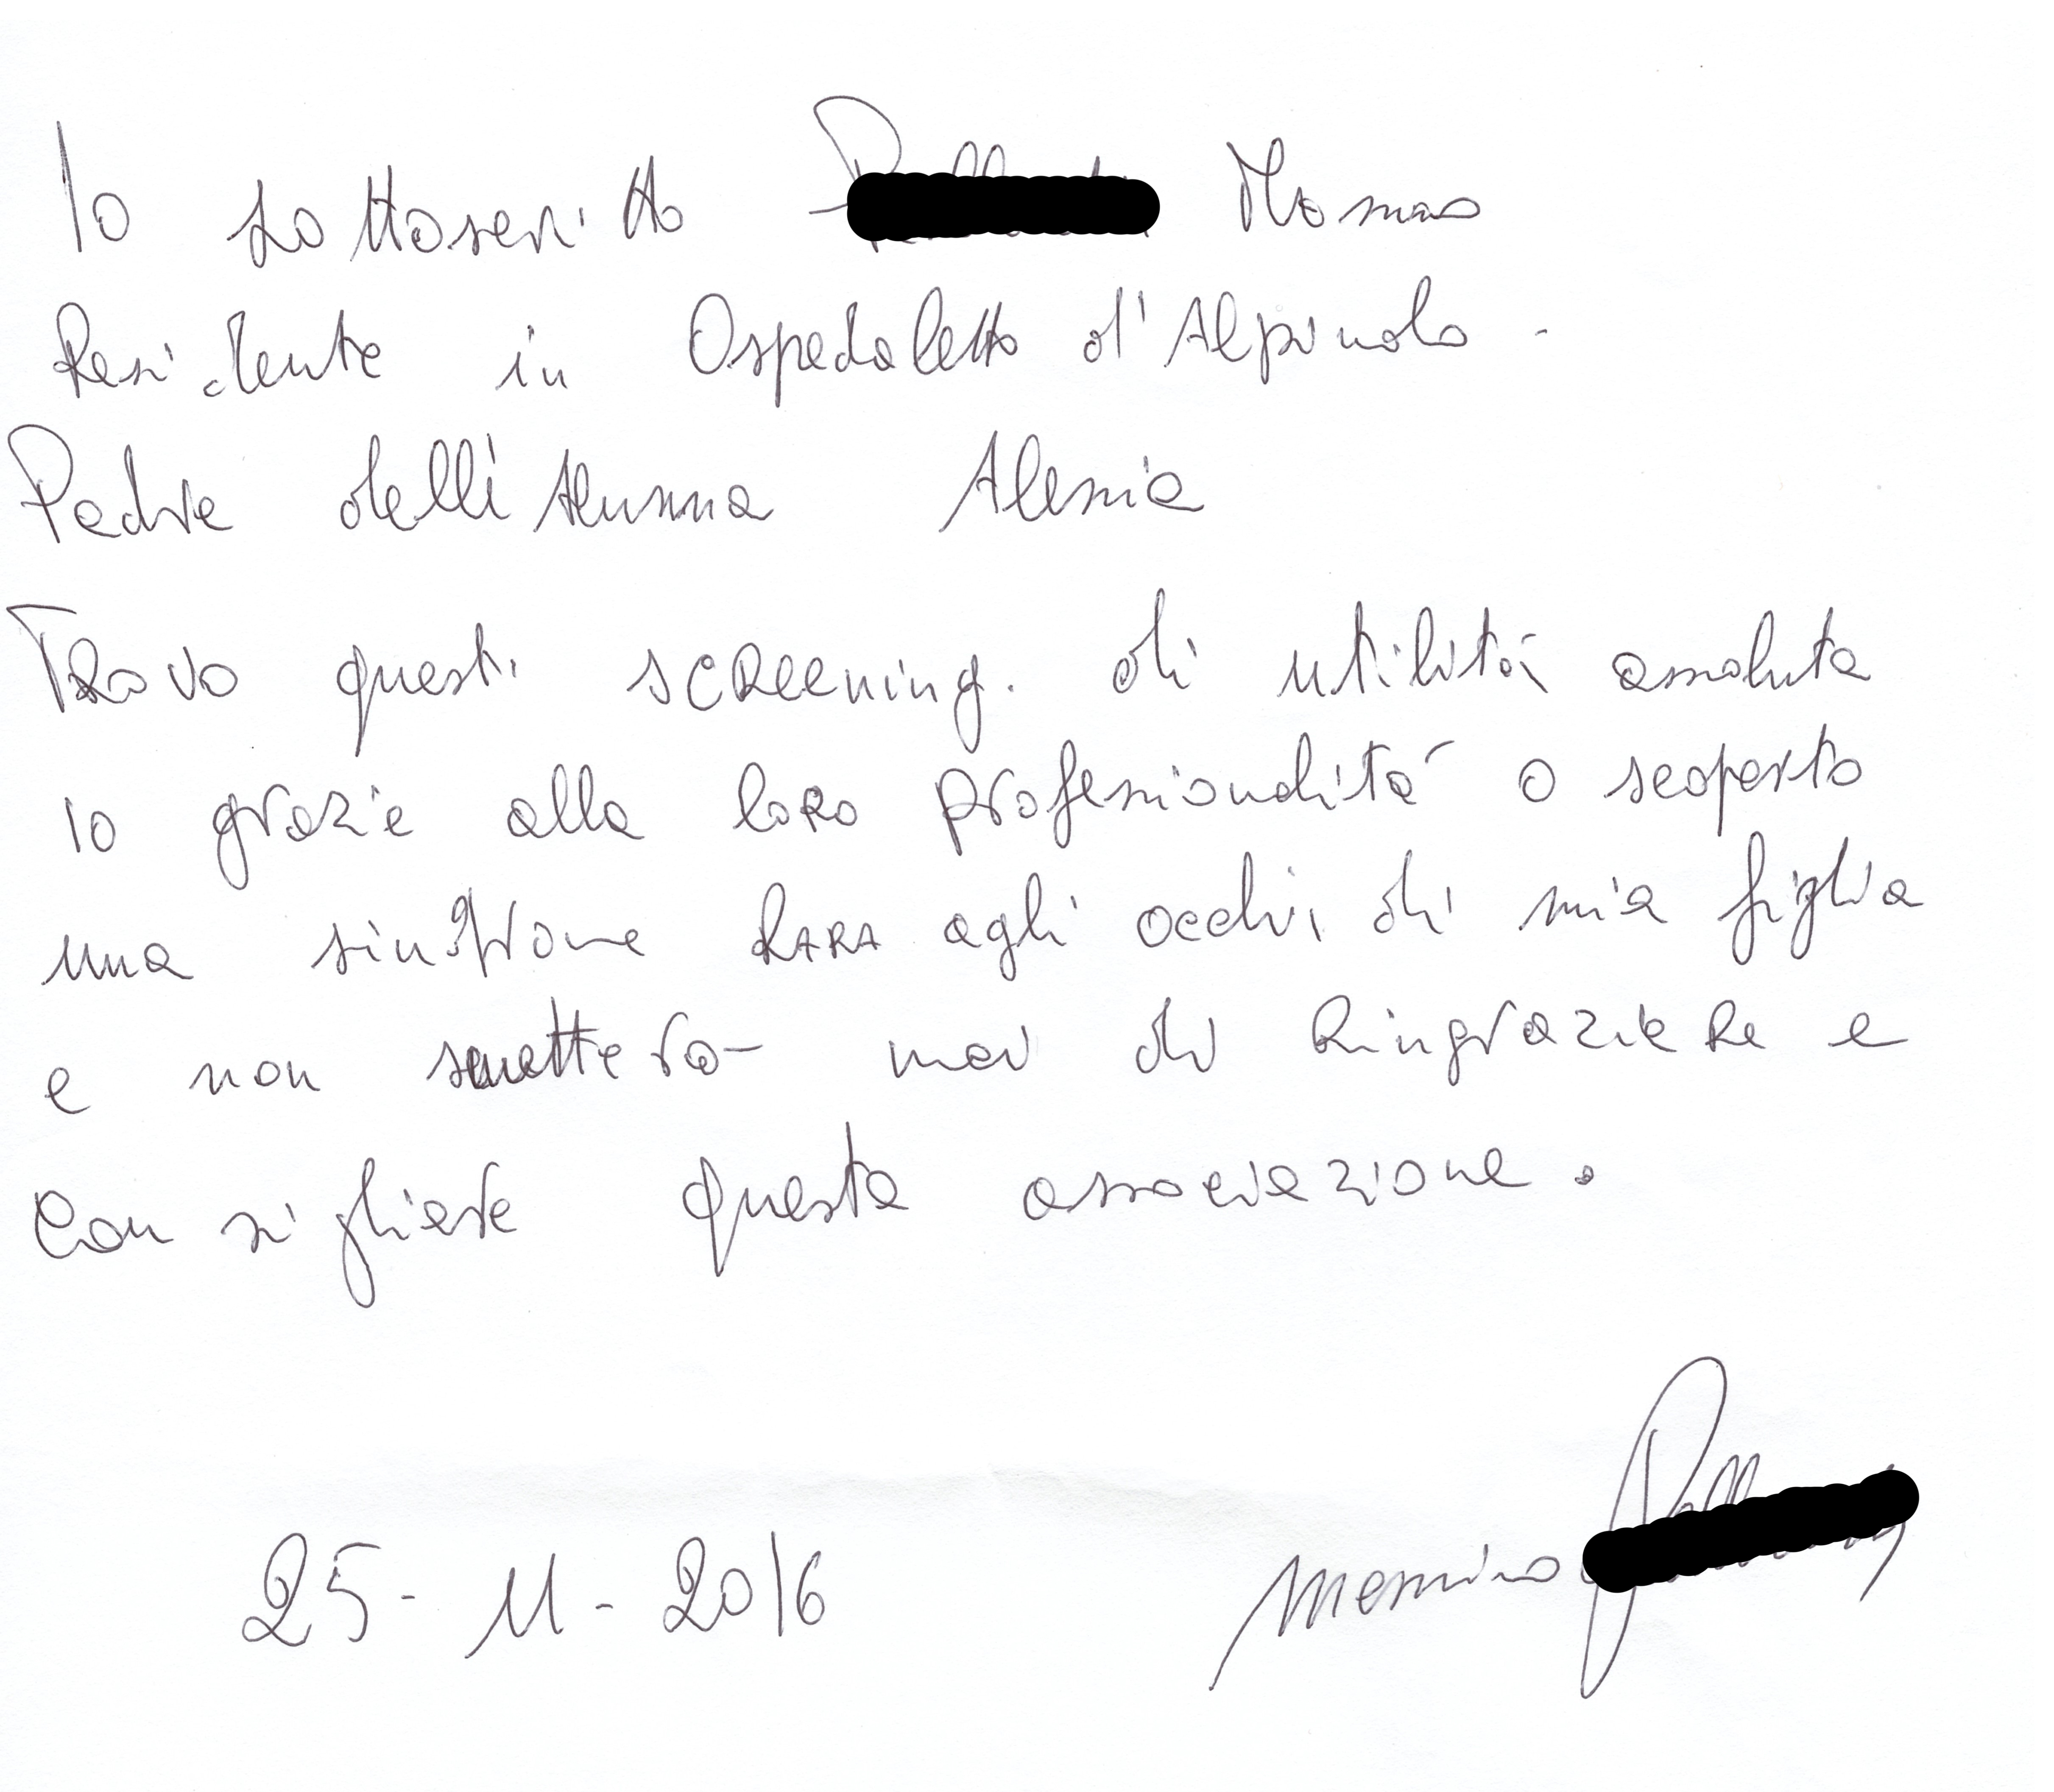 Io sottoscritto
Residente in Ospedaletto d'Alpinolo -
Padre dell'Alunna Alessia
Trovo questi screening. di utilità assoluta
Io grazie alla loro professionalità o scoperto
una sindrome RARA agli occhi di mia figlia
e non smetterò mai di Ringraziare e
Consigliare questa associazione.
25-11-2016